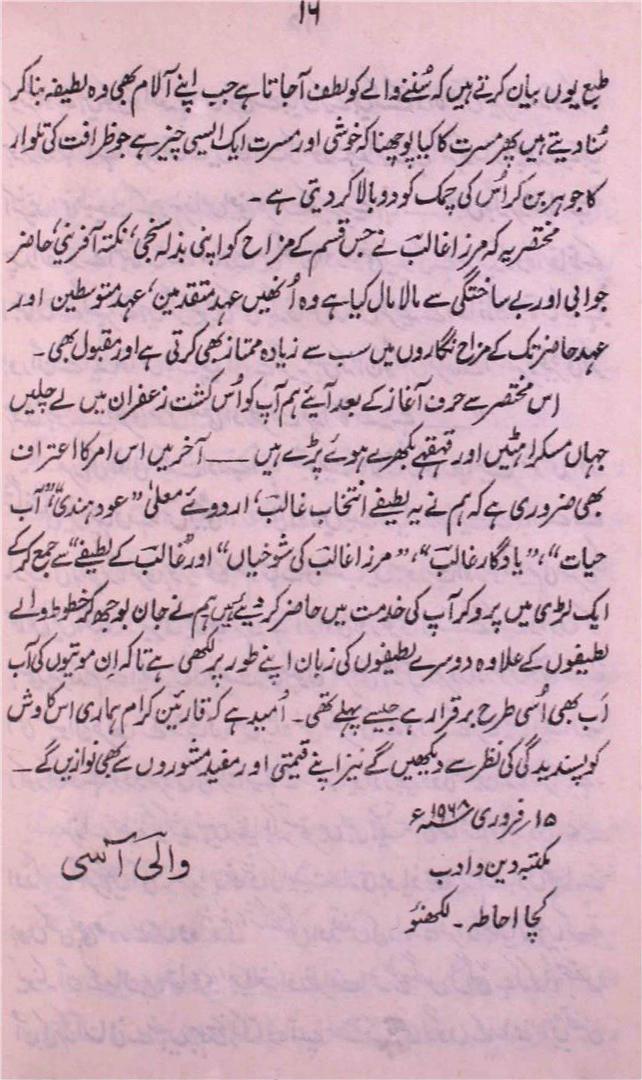 ۱۶
طبع یوں بیان کرتے ہیں کہ سُننے والے کو لطف آجاتا ہے جب اپنے آلام بھی وہ لطیفہ بنا کر
سُنا دیتے ہیں پھر مسرت کا کیا پوچھنا کہ خوشی اور مسرت ایک ایسی چیز ہے جو ظرافت کی تلوار
کا جوہر بن کر اُس کی چمک کو دوبالا کر دیتی ہے۔
مختصر یہ کہ مرزا غالبؔ نے جس قسم کے مزاح کو اپنی بذلہ سنجی، نکتہ آفرینی، حاضر
جوابی اور بے ساختگی سے مالا مال کیا ہے وہ اُنھیں عہد متقدمین، عہد متوسطین اور
عہد حاضر تک کے مزاح نگاروں میں سب سے زیادہ ممتاز بھی کرتی ہے اور مقبول بھی۔
اس مختصر سے حرف آغاز کے بعد آیئے ہم آپ کو اُس کشت زعفران میں لے چلیں
جہاں مسکراہٹیں اور قہقہے بکھرے ہوئے پڑے ہیں ــــ آخر میں اس امر کا اعتراف
بھی ضروری ہے کہ ہم نے یہ لطیفے انتخاب غالبؔ، اردوئے معلیٰ "عود ہندی"، "آب
حیات"، "یادگار غالبؔ"، "مرزا غالبؔ کی شوخیاں" اور "غالبؔ کے لطیفے" سے جمع کر کے
ایک لڑی میں پرو کر آپ کی خدمت میں حاضر کر دیئے ہیں ہم نے جان بوجھ کر خطوط والے
لطیفوں کے علاوہ دوسرے لطیفوں کی زبان اپنے طور پر لکھی ہے تاکہ اِن موتیوں کی آب
اَب بھی اُسی طرح برقرار رہے جیسے پہلے تھی۔ اُمید ہے کہ قارئین کرام ہماری اس کاوش
کو پسندیدگی کی نظر سے دیکھیں گے نیز اپنے قیمتی اور مفید مشوروں سے بھی نوازیں گے۔
۱۵؍ فروری ۱۹۶۸ء
والیؔ آسی
مکتبہ دین و ادب
کچا احاطہ۔ لکھنؤ